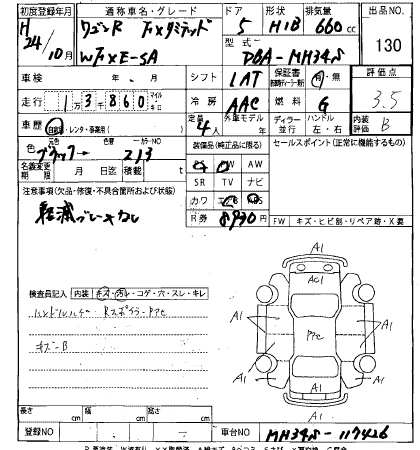 初度登録年月 通称車名・グレード ドア 形状 排気量 出品No.
H24/10月 ワゴンR FXリミテッド 5 H/B 660cc 130
WFXE-SA 型式 DBA-MH34S
車検 年. 月 シフト 1AT 保証書 有・無 評価点
走行 13860 マイル キロ 冷房 AAC 燃料 G 3.5
車歴 自家用・レンタ・事業用( ) 定員 4人 外車モデル 年 ディーラー 並行 ハンドル 左・右 内装 B
元色 色替 カラーNO
色 ブラック→ 213 装備品(純正品に限る) セールスポイント(正常に機能するもの)
名義変更期限 月 日迄 積載 t PS PW AW
SR TV ナビ
注意事項(欠品・修復・不具合箇所および状態) カワ エアB ABS
軽減ブレーキカシ R券 8930円 FW キズ・ヒビ割・リペア跡・X要
検査員記入 内装 キズ・汚レ・コゲ・穴・スレ・キレ
キズB
A1
A1 A1
AC1
A1 A1
A1 A1
A1
A1
長さ cm 幅 cm 高さ cm
登録NO 車台NO MH34S-117426